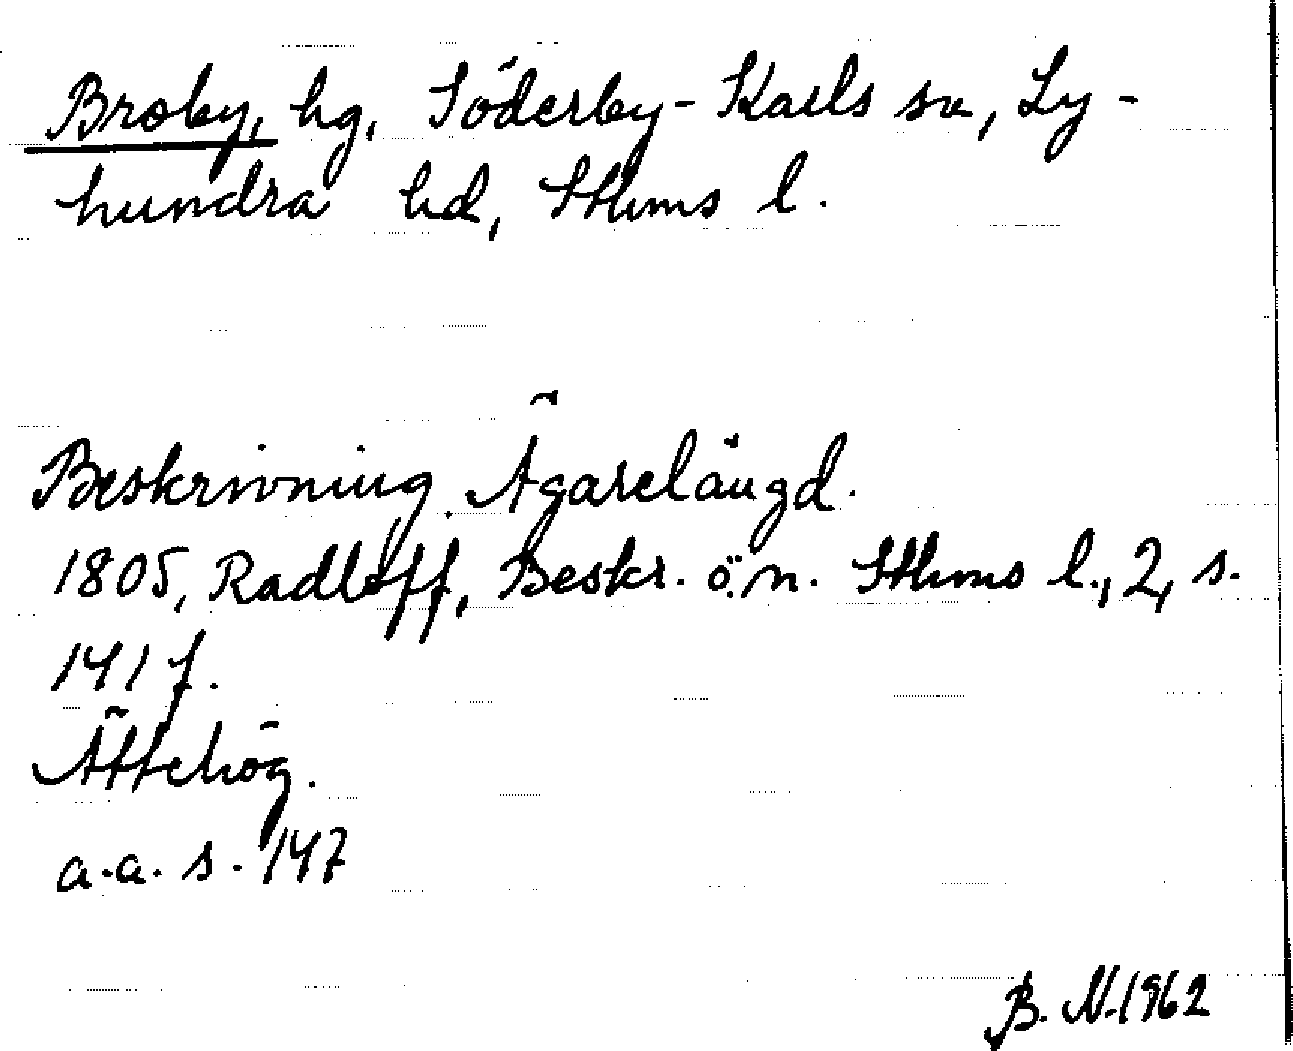 Broby, hg, Söderby-Karls sn, Ly-
hundra hd, Sthms l.
Beskrivning. Ägarelängd.
1805, Radloff, Beskr. ö. n. Sthms l., 2, s.
141 f.
Ättehög.
a.a. s. 147
B. N. 1962